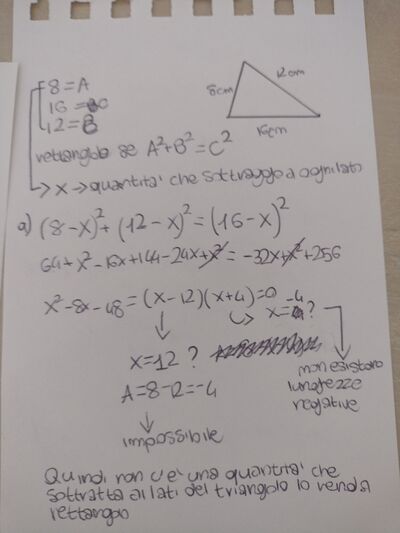 8 = A
16 = C
12 = B
8cm
12cm
16cm
rettangolo se A²+B²=C²
x → quantità che sottraggo a ogni lato
a) (8-x)²+(12-x)²=(16-x)²
64+x²-16x+144-24x+x²=-32x+x²+256
x²-8x-48=(x-12)(x+4)=0
x=-4?
x=12?
A=8-12=-4
impossibile
non esistono
lunghezze
negative
Quindi non c'è una quantità che
sottratta ai lati del triangolo lo renda
rettangolo